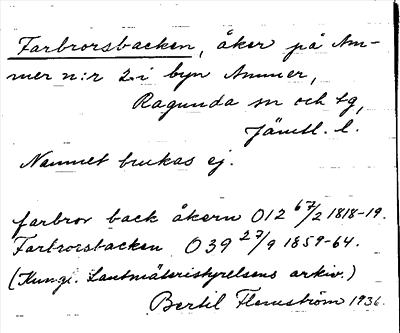 Farbrorsbacken, åker på Am-
mer n:r 2 i byn Ammer,
Ragunda sn och tg,
Jämtl. l.
Namnet brukas ej.
farbror back åkern O12 67/2 1818-19.
Farbrorsbacken O39 27/9 1859-64.
(Kungl. Lantmäteristyrelsens arkiv.)
Bertil Flemström 1936.